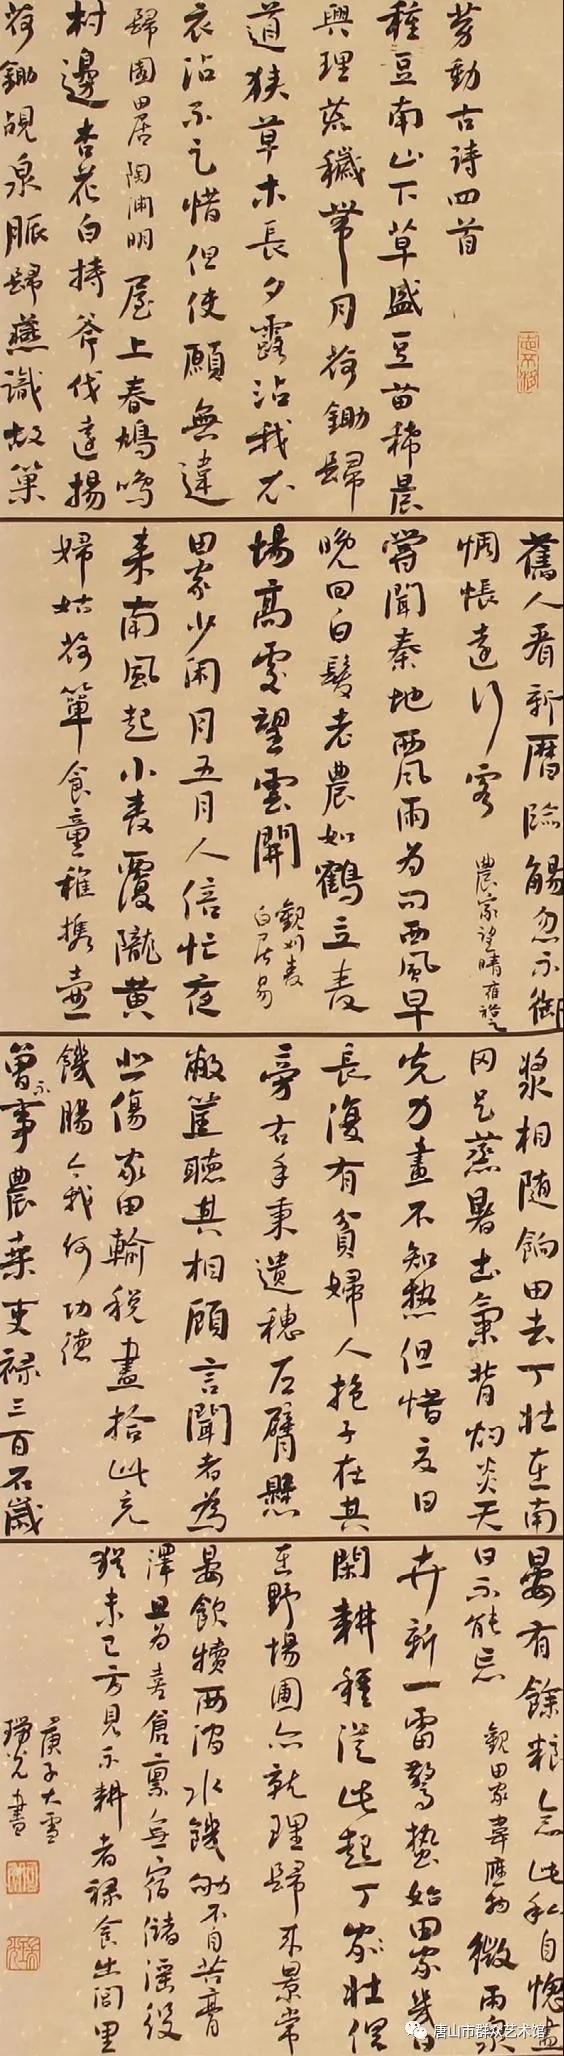 勞動古詩四首
種豆南山下草盛豆苗稀晨
興理荒穢帶月荷鋤歸
道狹草木長夕露沾我衣
衣沾不足惜但使願無違
歸園田居陶淵明 屋上春鳩鳴
村邊杏花白持斧伐遠揚
荷鋤覘泉脈歸燕識故巢
舊人看新曆臨觴忽不御
惆悵遠行客 農家望晴雍裕之
嘗聞秦地西風雨為問西風早
晚回白髮老農如鶴立麥
場高處望雲開 觀刈麥白居易
田家少閑月五月人倍忙夜
來南風起小麥覆隴黃
婦姑荷簞食童稚攜壺
漿相隨餉田去丁壯在南
岡足蒸暑土氣背灼炎天
光力盡不知熱但惜夏日
長復有貧婦人抱子在其
旁右手秉遺穗左臂懸
敝筐聽其相顧言聞者為
悲傷家田輸稅盡拾此充
饑腸今我何功德
曾不事農桑吏祿三百石歲
晏有餘糧念此私自愧盡
日不能忘 觀田家韋應物 微雨衆
卉新一雷驚蟄始田家幾日
閑耕種從此起丁家壯俱
在野場圃亦就理歸來景常
晏飲犢西澗水饑劬不自苦膏
澤且為喜倉稟無宿儲徭役
猶未已方見不耕者祿食出閭里
庚子大雪
瑞光書
唐山市群众艺术馆